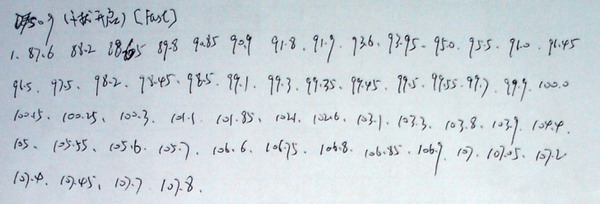 (干扰开启) [Fast]
1. 87.6 88.2 88.65 89.8 90.85 90.9 91.8. 91.9. 93.6. 93.95. 95.0. 95.5. 96.0. 96.45
96.5. 97.5. 98.2. 98.45. 98.5. 99.1. 99.3. 99.35. 99.45. 99.5. 99.55. 99.7. 99.9. 100.0
100.15. 100.25. 100.3. 101.1. 101.85. 102.1. 102.6. 103.1. 103.3. 103.8. 103.9. 104.4.
105. 105.55. 105.6. 105.7. 106.6. 106.75. 106.8. 106.85. 106.9. 107. 107.05. 107.2
107.4. 107.45. 107.7. 107.8.